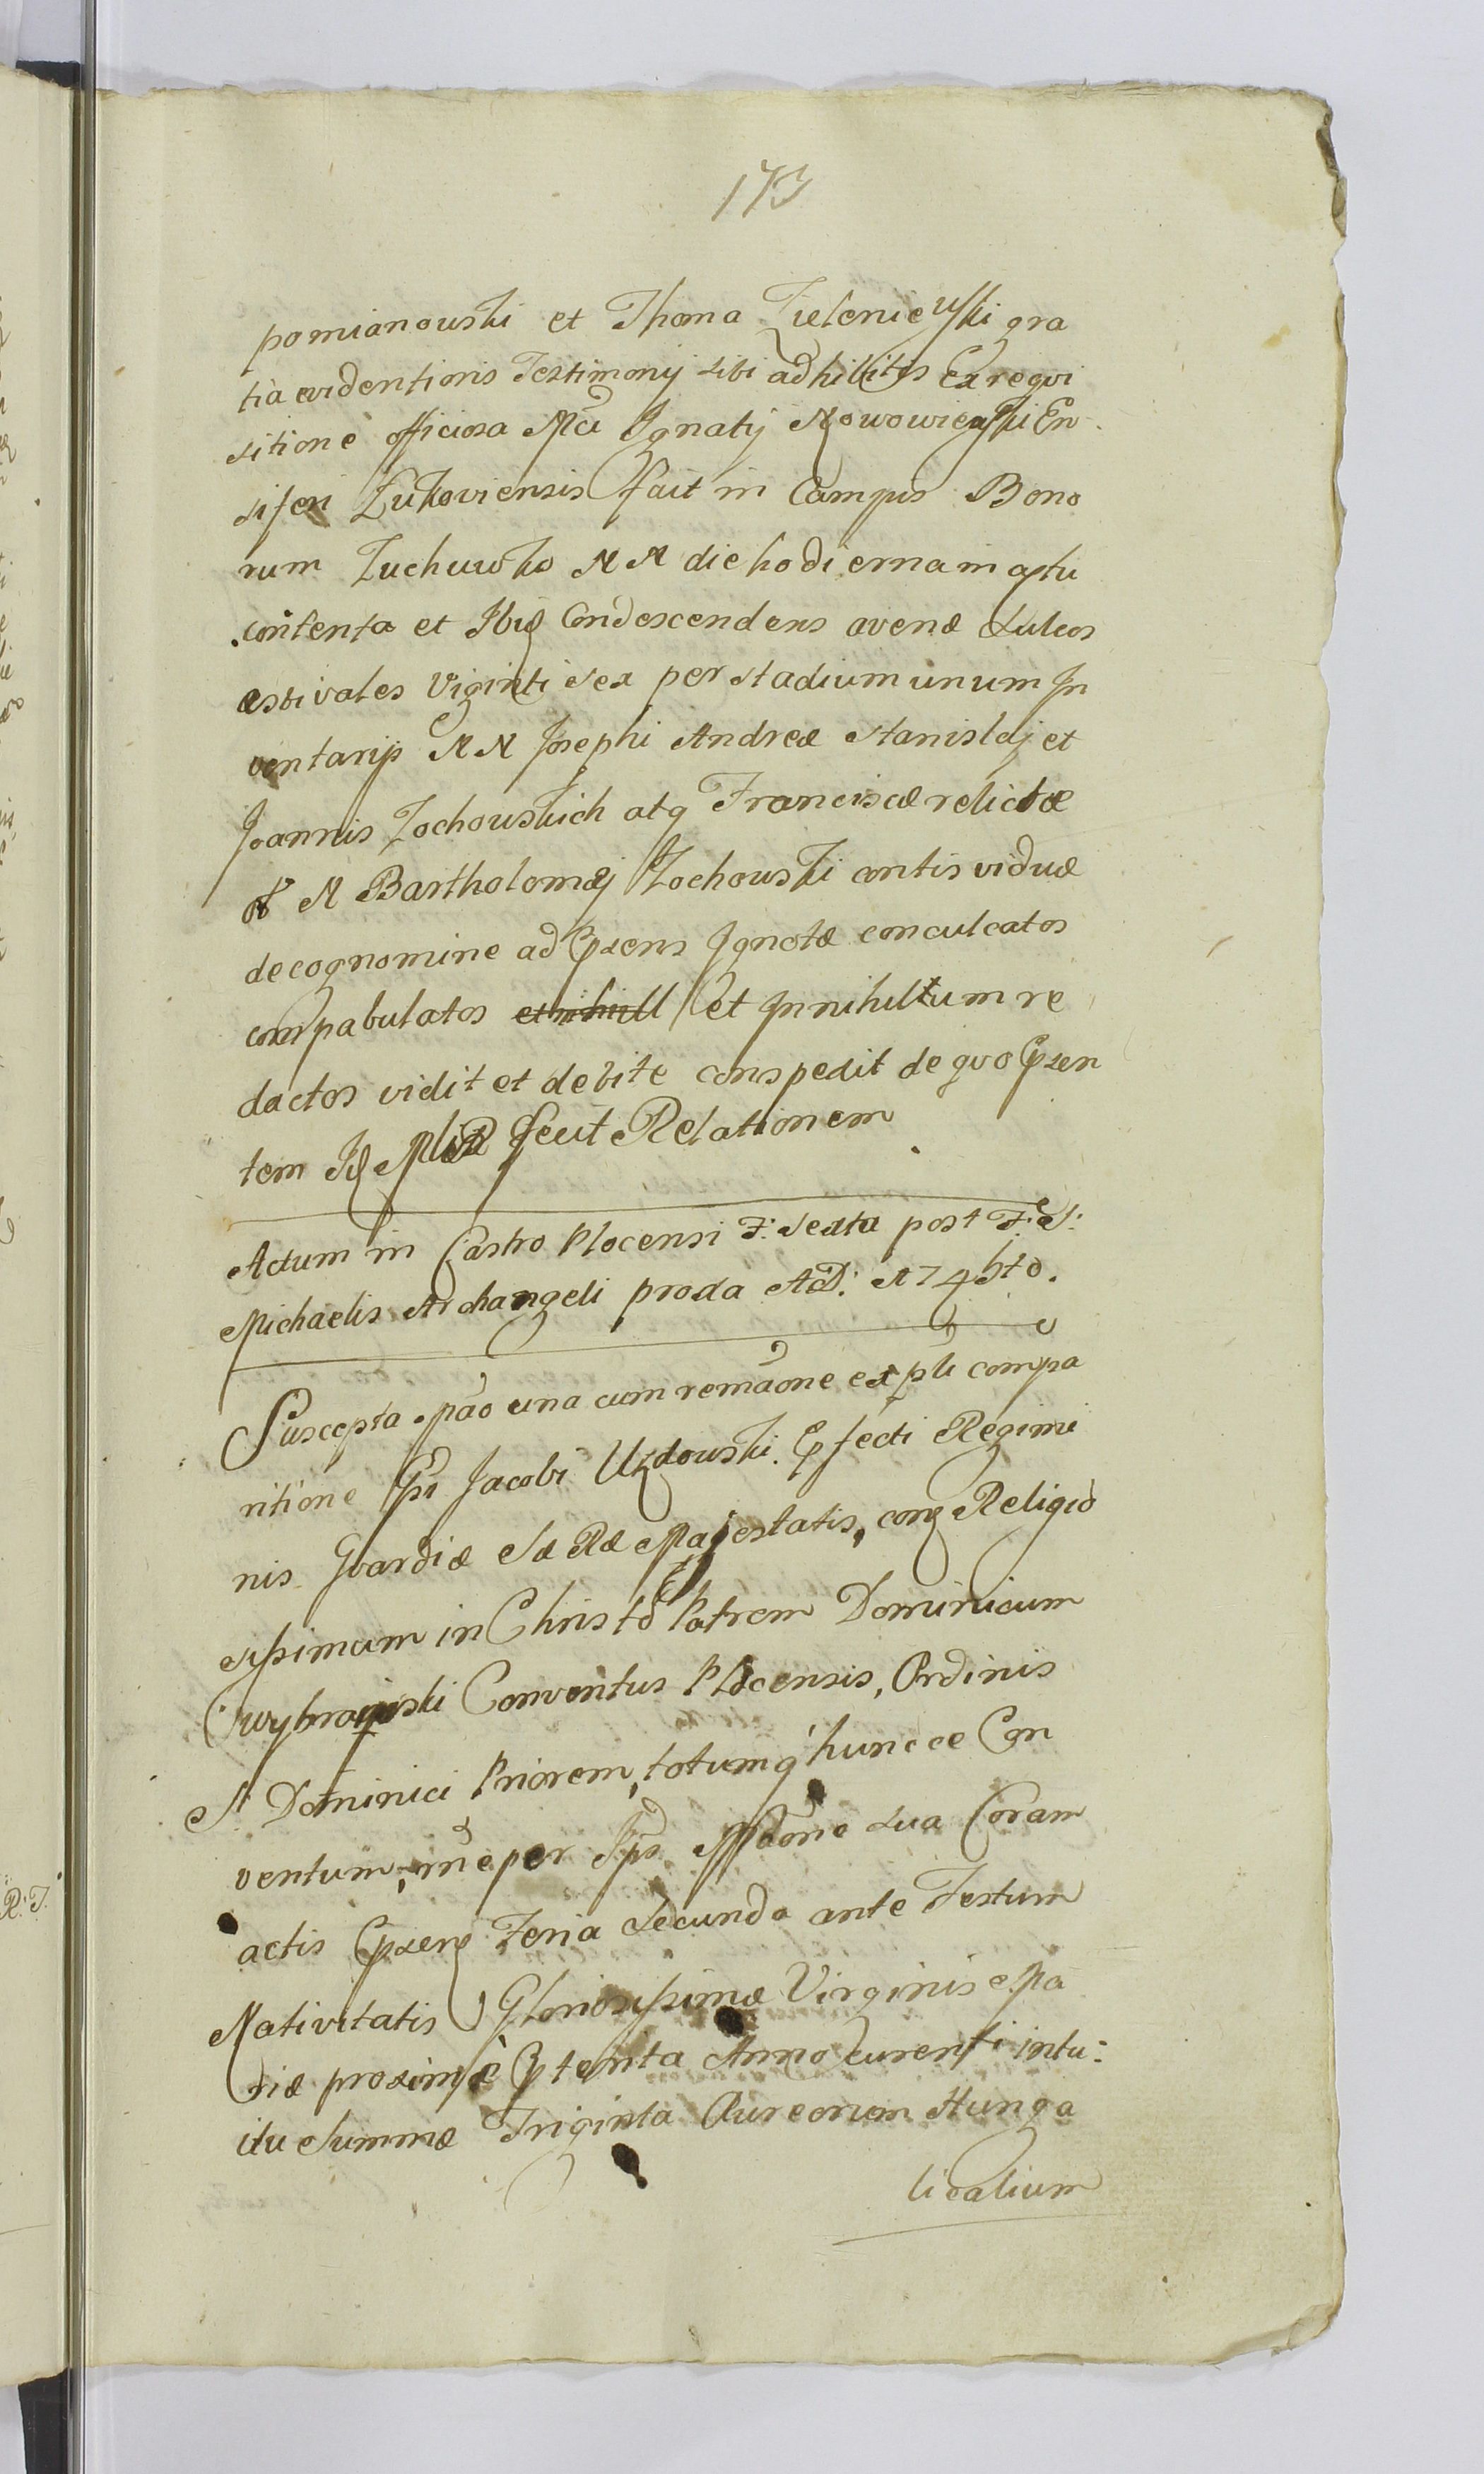 173
pomianowski et Thoma Zieleniewski gra
tia evidentioris Testimonij sibi adhibitis Ex reqvi
sitione officiosa Mci Ignatij Nowowieyski En
siferi Zukroviensis fuit in Campis Bono
rum Zuchowko NN die hodierna in actu
contenta et Ibiq Condescendens avenæ Sulcos
æstivales Viginti sex per stadium unum In
ventarijs NN Josephi Andreæ Stanislaj et
Joannis Zochowskich atq Franciscæ relictæ
N Bartholomæj Zochowski antis viduæ
de cognomine ad Præsens Ignotæ conculcatos
compabulatos et nihill et In nihiltum re
dactos vidit et debite conspexit de qvo Præsen
tem Id Mlis fecit Relationem
Actum in Castro Plocensi F: Sexta post F: S:
Michaelis Archangeli proxa A: D: 174
Suscepta pão una cum remãone ex pti compa
ritione Gsi Jacobi Uzdowski. Præfecti Regimi
nis Gvardiæ Sæ Ræ Majestatis, conq Religio
sissimum in Christo Patrem Dominicum
Conventus Plocensis, Ordinis
S. Dominici Priorem, totumq huncce Con
ventum, per Ips sua Coram
actis Præsens Feria Secunda ante Festum
Nativitatis Gloriosissimæ Virginis Ma
riæ proximè Præterita Anno curenti intu:
itu Summæ Triginta Aureorum Hunga
licalium
R: T.